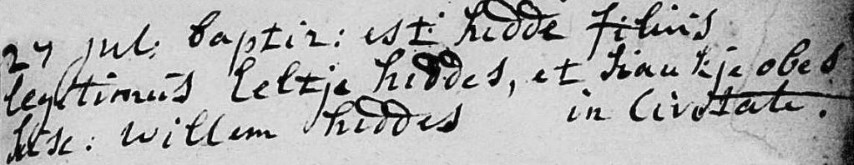 27 jul: baptiz: est hidde filius
legitimus Eeltje hiddes, et Siaukje obes
susc: Willem hiddes in Civitate.